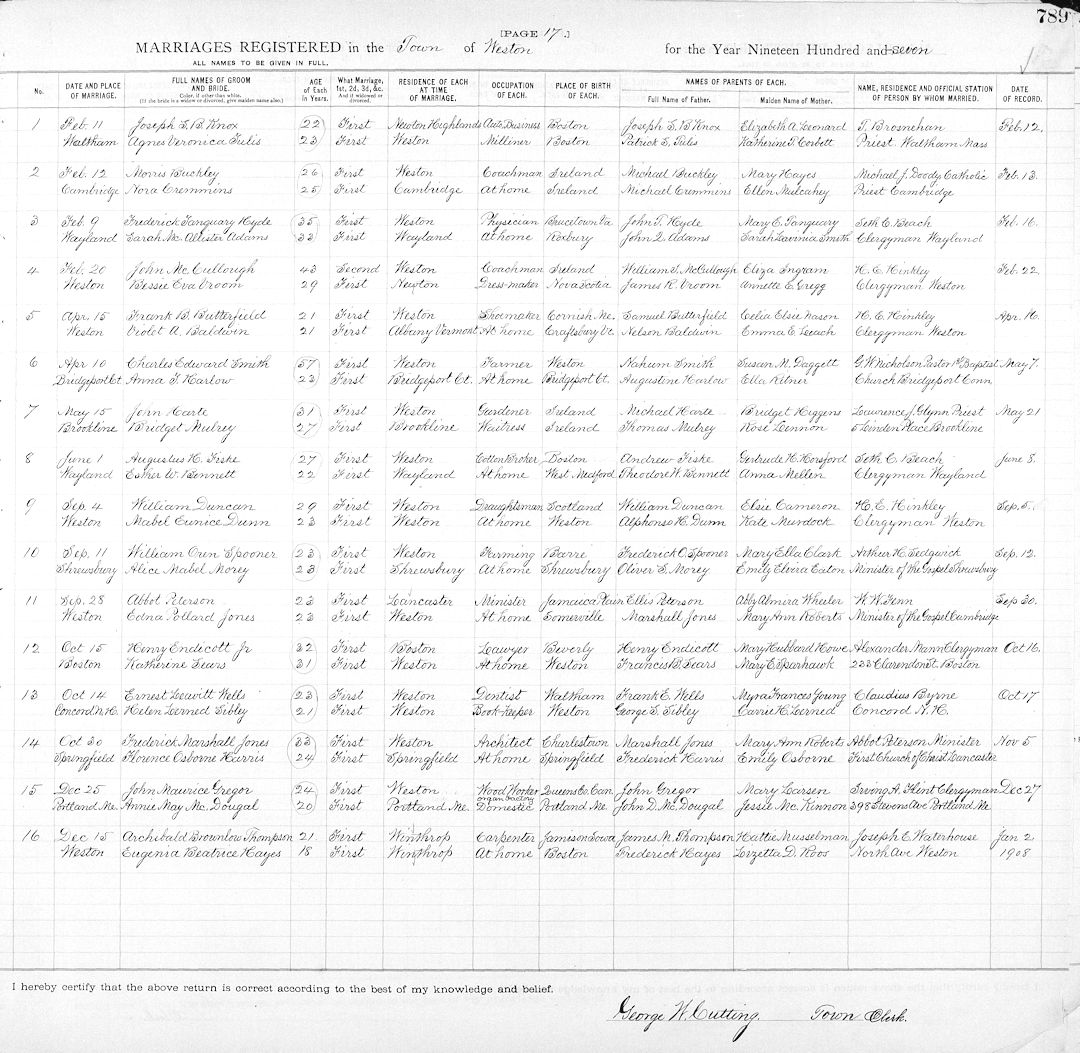 789
[PAGE 17.]
MARRIAGES REGISTERED in the Town of Weston for the Year Nineteen Hundred and seven
ALL NAMES TO BE GIVEN IN FULL.
No. DATE AND PLACE OF MARRIAGE. FULL NAMES OF GROOM AND BRIDE. Color, if other than white. (If the bride is a widow or divorced, give maiden name also.) AGE of Each in Years. What Marriage, 1st, 2d, 3d, &c. And if widowed or divorced. RESIDENCE OF EACH AT TIME OF MARRIAGE. OCCUPATION OF EACH. PLACE OF BIRTH OF EACH. NAMES OF PARENTS OF EACH. Full Name of Father. Maiden Name of Mother. NAME, RESIDENCE AND OFFICIAL STATION OF PERSON BY WHOM MARRIED. DATE OF RECORD.
1 Feb. 11 Joseph S. B. Knox 22 First Newton Highlands Auto Business Boston Joseph S. B. Knox Elizabeth A. Leonard T. Brosnehan Feb. 12.
Waltham Agnes Veronica Tulis 23 First Weston Milliner Boston Patrick S. Tulis Katherine T. Corbett Priest Waltham Mass
2 Feb. 12 Morris Buckley 26 First Weston Coachman Ireland Michael Buckley Mary Hayes Michael J. Doody Catholic Feb. 13.
Cambridge Nora Cremmins 25 First Cambridge At home Ireland Michael Cummins Ellen Mulcahey Priest Cambridge
3 Feb. 9 Frederick Tanguary Hyde 35 First Weston Physician Brucetown Va John T. Hyde Mary E. Tanquary Seth C. Beach Feb. 16.
Wayland Sarah Mc Allister Adams 33 First Wayland At home Roxbury John Q. Adams Sarah Lavinia Smith Clergyman Wayland
4 Feb. 20 John Mc Cullough 43 Second Weston Coachman Ireland William S. McCullough Eliza Ingram H. E. Hinkley Feb. 22
Weston Bessie Eva Vroom 29 First Newton Dress-maker Nova Scotia James R. Vroom Annette E. Gregg Clergyman Weston
5 Apr. 15 Frank B. Butterfield 21 First Weston Shoemaker Cornish Me. Samuel Butterfield Celia Elsie Nason H. E. Hinkley Apr. 16.
Weston Violet A. Baldwin 21 First Albany Vermont At home Craftsbury Vt. Nelson Baldwin Emma E. Leach Clergyman Weston
6 Apr 10 Charles Edward Smith 57 First Weston Farmer Weston Nahum Smith Susan M. Daggett G. W. Nicholson Pastor 1st Baptist May 7.
Bridgeport Ct. Anna T. Harlow 23 First Bridgeport Ct. At home Bridgeport Ct. Augustine Harlow Ella Kilner Church Bridgeport Conn.
7 May 15 John Harte 31 First Weston Gardener Ireland Michael Harte Bridget Higgens Lawrence J. Glynn Priest May 21
Brookline Bridget Mulrey 27 First Brookline Waitress Ireland Thomas Mulrey Rose Lennon 5 Linden Place Brookline
8 June 1 Augustus H. Fiske 27 First Weston Cotton Broker Boston Andrew Fiske Gertrude H. Horsford Seth C. Beach June 8.
Wayland Esther W. Bennett 22 First Wayland At home West Medford Theodore W. Bennett Anna Mellen Clergyman Wayland
9 Sep. 4 William Duncan 29 First Weston Draughtsman Scotland William Duncan Elsie Cameron H. E. Hinkley Sep. 5.
Weston Mabel Eunice Dunn 23 First Weston At home Weston Alphonso H. Dunn Kate Murdock Clergyman Weston
10 Sep. 11 William Orin Spooner 23 First Weston Farming Barre Frederick O. Spooner Mary Ella Clark Arthur H. Sedgwick Sep. 12.
Shrewsbury Alice Mabel Morey 23 First Shrewsbury At home Shrewsbury Oliver S. Morey Emily Elvira Eaton Minister of the Gospel Shrewsbury
11 Sep. 28 Abbot Peterson 23 First Lancaster Minister Jamaica Plain Ellis Peterson Abby Almira Wheeler W. W. Fenn Sep 30.
Weston Edna Pollard Jones 23 First Weston At home Somerville Marshall Jones Mary Ann Roberts Minister of the Gospel Cambridge
12 Oct 15 Henry Endicott Jr 32 First Boston Lawyer Beverly Henry Endicott Mary Hubbard Howe Alexander Mann Clergyman Oct 16.
Boston Katherine Sears 31 First Weston At home Weston Francis B. Sears Mary E. Sparhawk 233 Clarendon St. Boston
13 Oct 14 Ernest Leavitt Wells 23 First Weston Dentist Waltham Frank E. Wells Myra Frances Young Claudius Byrne Oct 17
Concord N. H. Helen Lerned Sibley 21 First Weston Book-keeper Weston George S. Sibley Carrie H. Lerned Concord N. H.
14 Oct 30 Frederick Marshall Jones 33 First Weston Architect Charlestown Marshall Jones Mary Ann Roberts Abbot Peterson Minister Nov 5
Springfield Florence Osborne Harris 24 First Springfield At home Springfield Frederick Harris Emily Osborne First Church of Christ Lancaster
15 Dec 25 John Maurice Gregor 24 First Weston Wood Worker organ factory Queens Co. Can. John Gregor Mary Larsen Irving A. Flint Clergyman Dec 27
Portland Me. Annie May Mc. Dougal 20 First Portland Me. Domestic Portland Me. John D. Mc. Dougal Jessie Mc. Kinnon 398 Stevens Ave Portland Me
16 Dec. 15 Archibald Brownlow Thompson 21 First Winthrop Carpenter Jamison Iowa James M. Thompson Hattie Musselman Joseph E. Waterhouse Jan 2
Weston Eugenia Beatrice Hayes 18 First Winthrop At home Boston Frederick Hayes Lizetta D. Roos North Ave Weston 1908
I hereby certify that the above return is correct according to the best of my knowledge and belief.
George W. Cutting. Town Clerk.